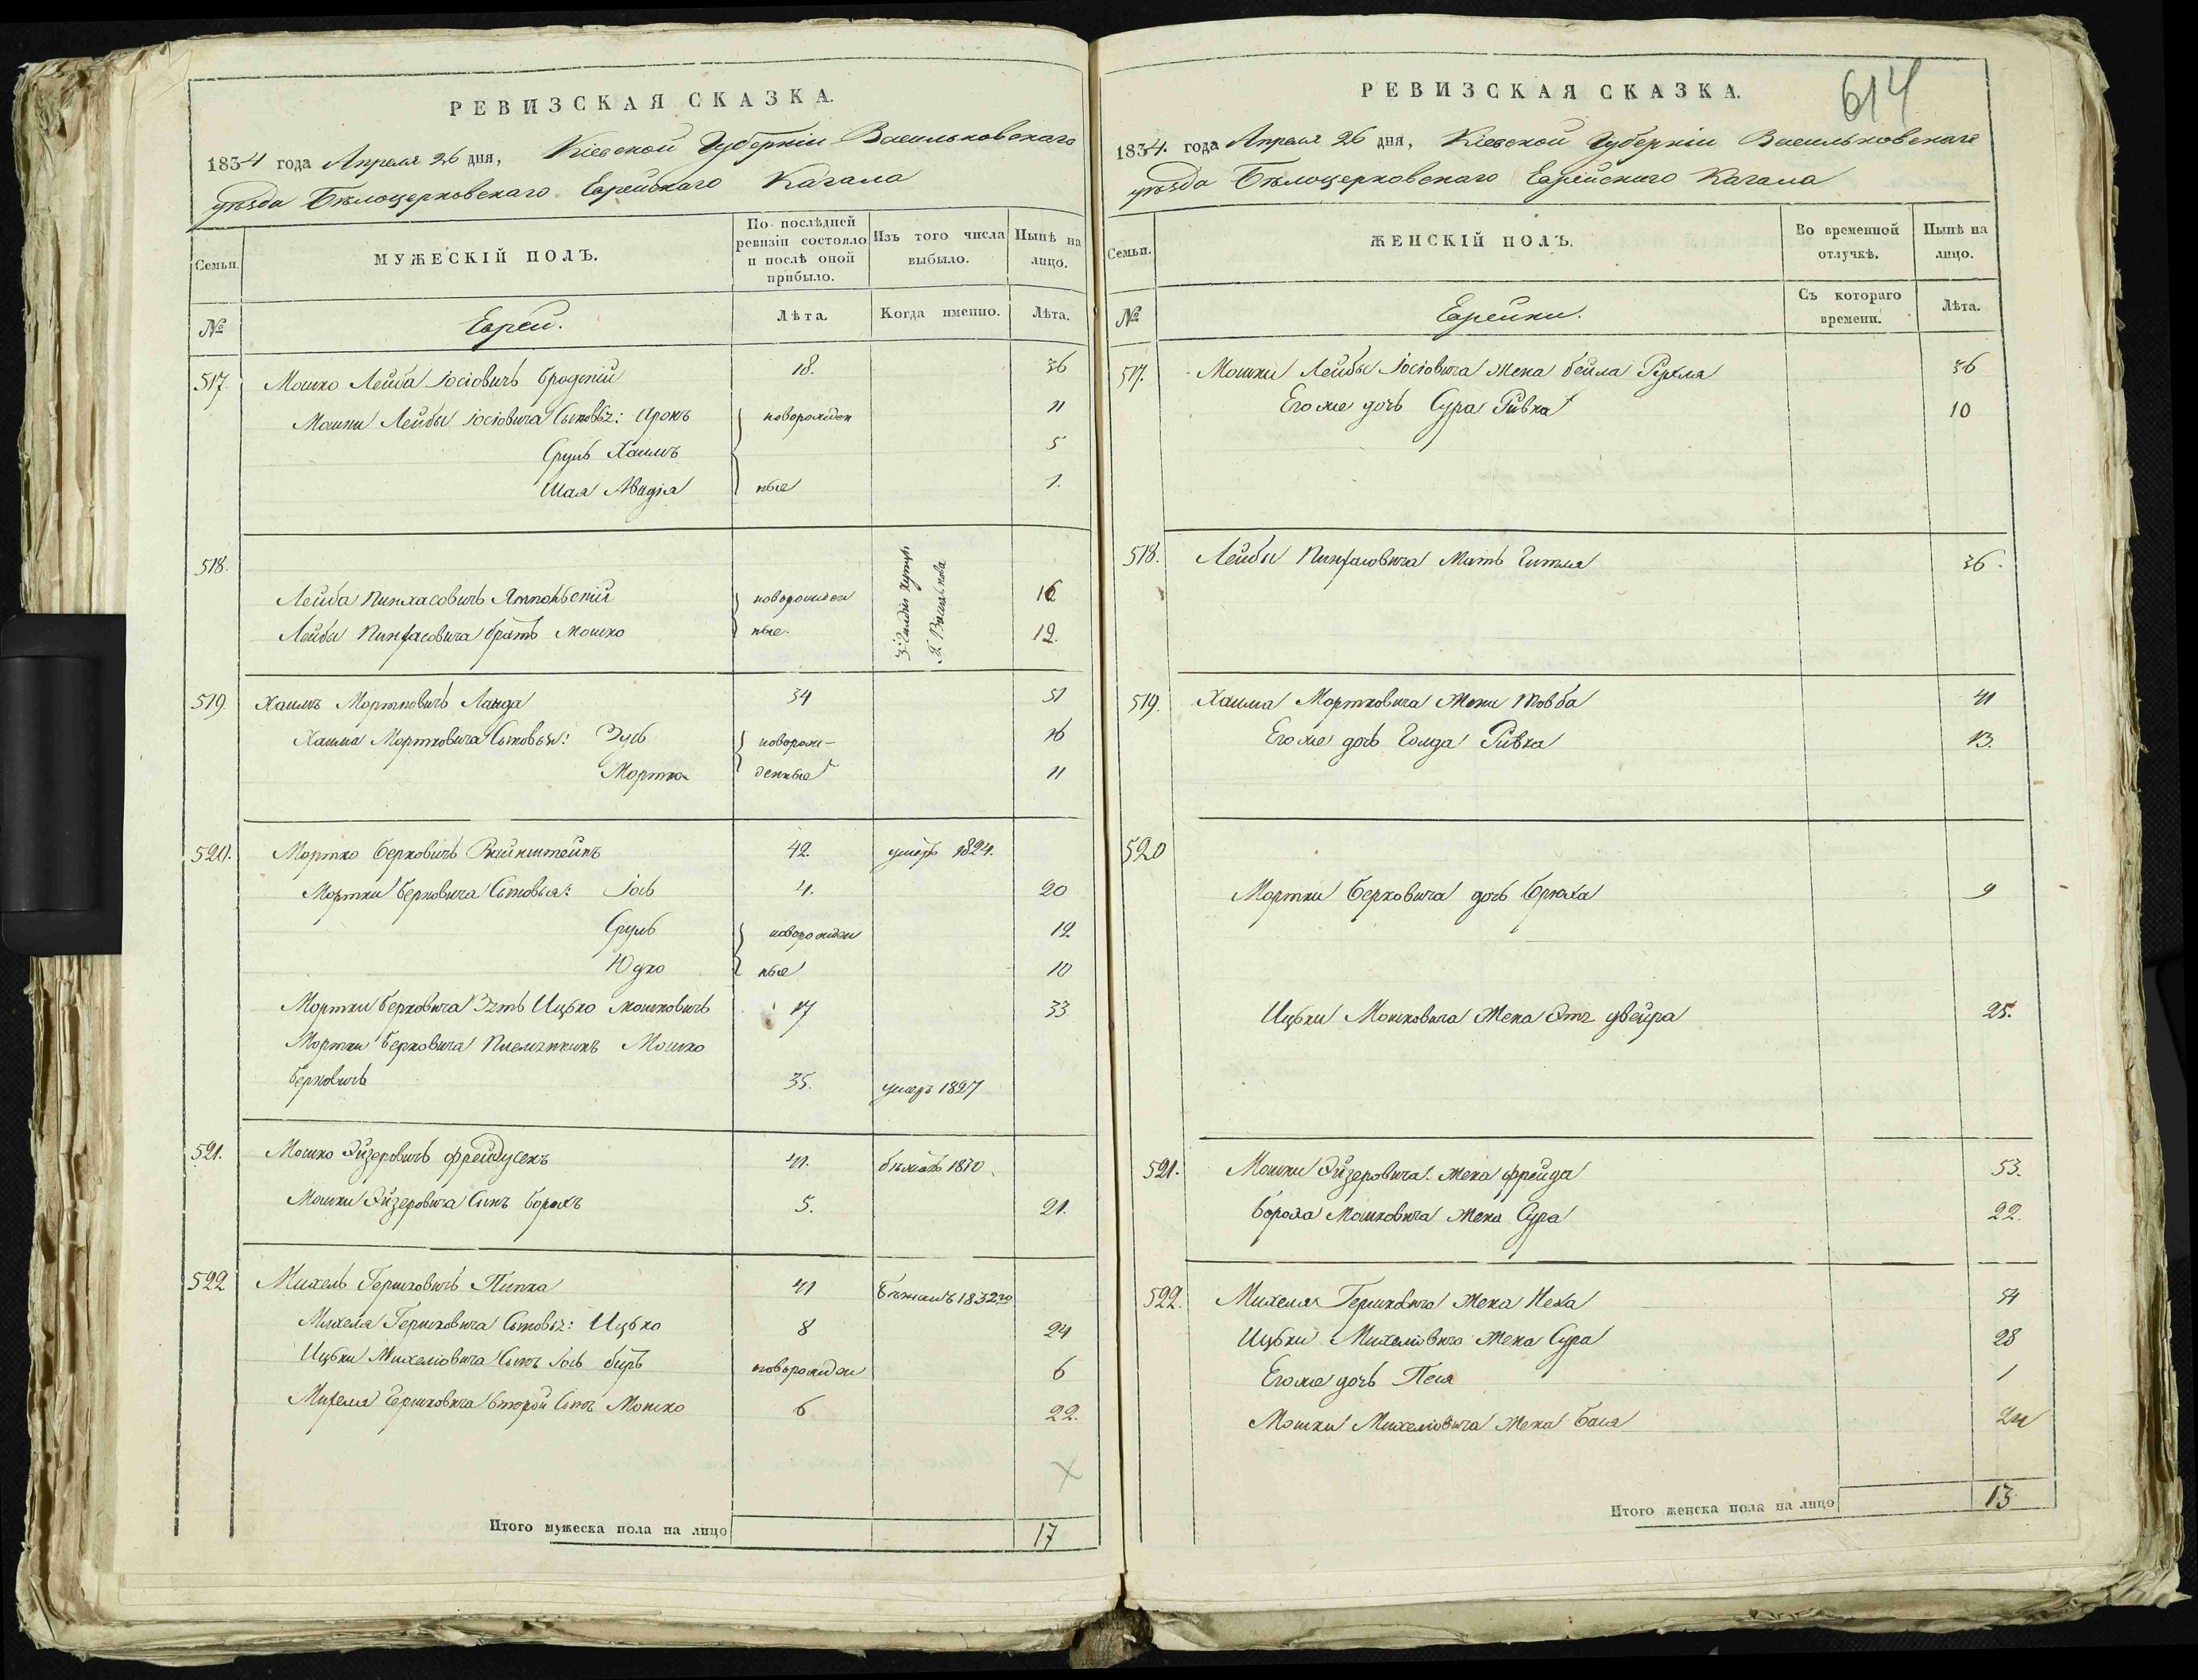 РЕВИЗСКАЯ СКАЗКА.
1834 года Апреля 26 дня, Кіевской Губерніи Васильковскаго
уѣзда Бѣлоцерковскаго Еврейскаго Кагала
Семьи.
МУЖЕСКІЙ ПОЛЪ.
По послѣдней ревизіи состояло и послѣ оной прибыло.
Изъ того числа выбыло.
Нынѣ на лицо.
№
Евреи.
Лѣта.
Когда именно.
Лѣта.
517. Мошко Лейба Іосіовичъ Бродскій 18. 36
Мошки Лейбы Іосіовича Сыновья: Аронъ новорожден 11
Сруль Хаимъ 5
Шая Авадія ные 1.
518.
Лейба Пинхасовичъ Ямпольскій новорожден 16
Лейбы Пинхасовича братъ Мошко ные. 12.
519. Хаимъ Мортковичъ Ланда 34 51
Хаима Мортковича Сыновья: Зусь новорож- 16
Мортко денные 11
520. Мортко Берковичъ Вайнштейнъ 42. умеръ 1824.
Мортки Берковича Сыновья: Іось 4. 20
Сруль новорожден 12
Юдко ные 10
Мортки Берковича Зять Ицько Мошковичъ 17 33
Мортки Берковича Племянникъ Мошко
Берковичъ 35. умеръ 1827
521. Мошко Эйзеровичъ 41. бѣжалъ 1830.
Мошки Эйзеровича Сынъ Борохъ 5. 21.
522 Михель Гершковичъ Пипка 41 Бѣжалъ 1832го
Михеля Гершковича Сыновья: Ицько 8 24
Ицьки Михеліовича Сынъ Іось Беръ новорожден 6
Михеля Гершковича второй Сынъ Мошко 6 22.
Итого мужеска пола на лицо 17
РЕВИЗСКАЯ СКАЗКА.
614
1834. года Апреля 26 дня, Кіевской Губерніи Васильковскаго
уѣзда Бѣлоцерковскаго Еврейскаго Кагала
Семьи.
ЖЕНСКІЙ ПОЛЪ.
Во временной отлучкѣ.
Нынѣ на лицо.
№
Еврейки.
Съ котораго времени.
Лѣта.
517. Мошки Лейбы Іосіовича Жена Бейла Рухля 36
Его же дочь Сура Ривка 10
518. Лейбы Пинхасовича Мать Гитля 36.
519. Хаима Мортковича Жена Товба 41
Его же дочь Голда Ривка 13.
520
Мортки Берковича дочь Брюха 9
Ицьки Мошковича Жена Двейра 25.
521. Мошки Эйзеровича Жена Фрейда 53.
Бороха Мошковича Жена Сура 22.
522. Михеля Гершковича Жена Неха 54
Ицьки Михеліовича Жена Сура 28
Его же дочь Песя 1
Мошки Михеліовича Жена Бася 24
Итого женска пола на лицо 13